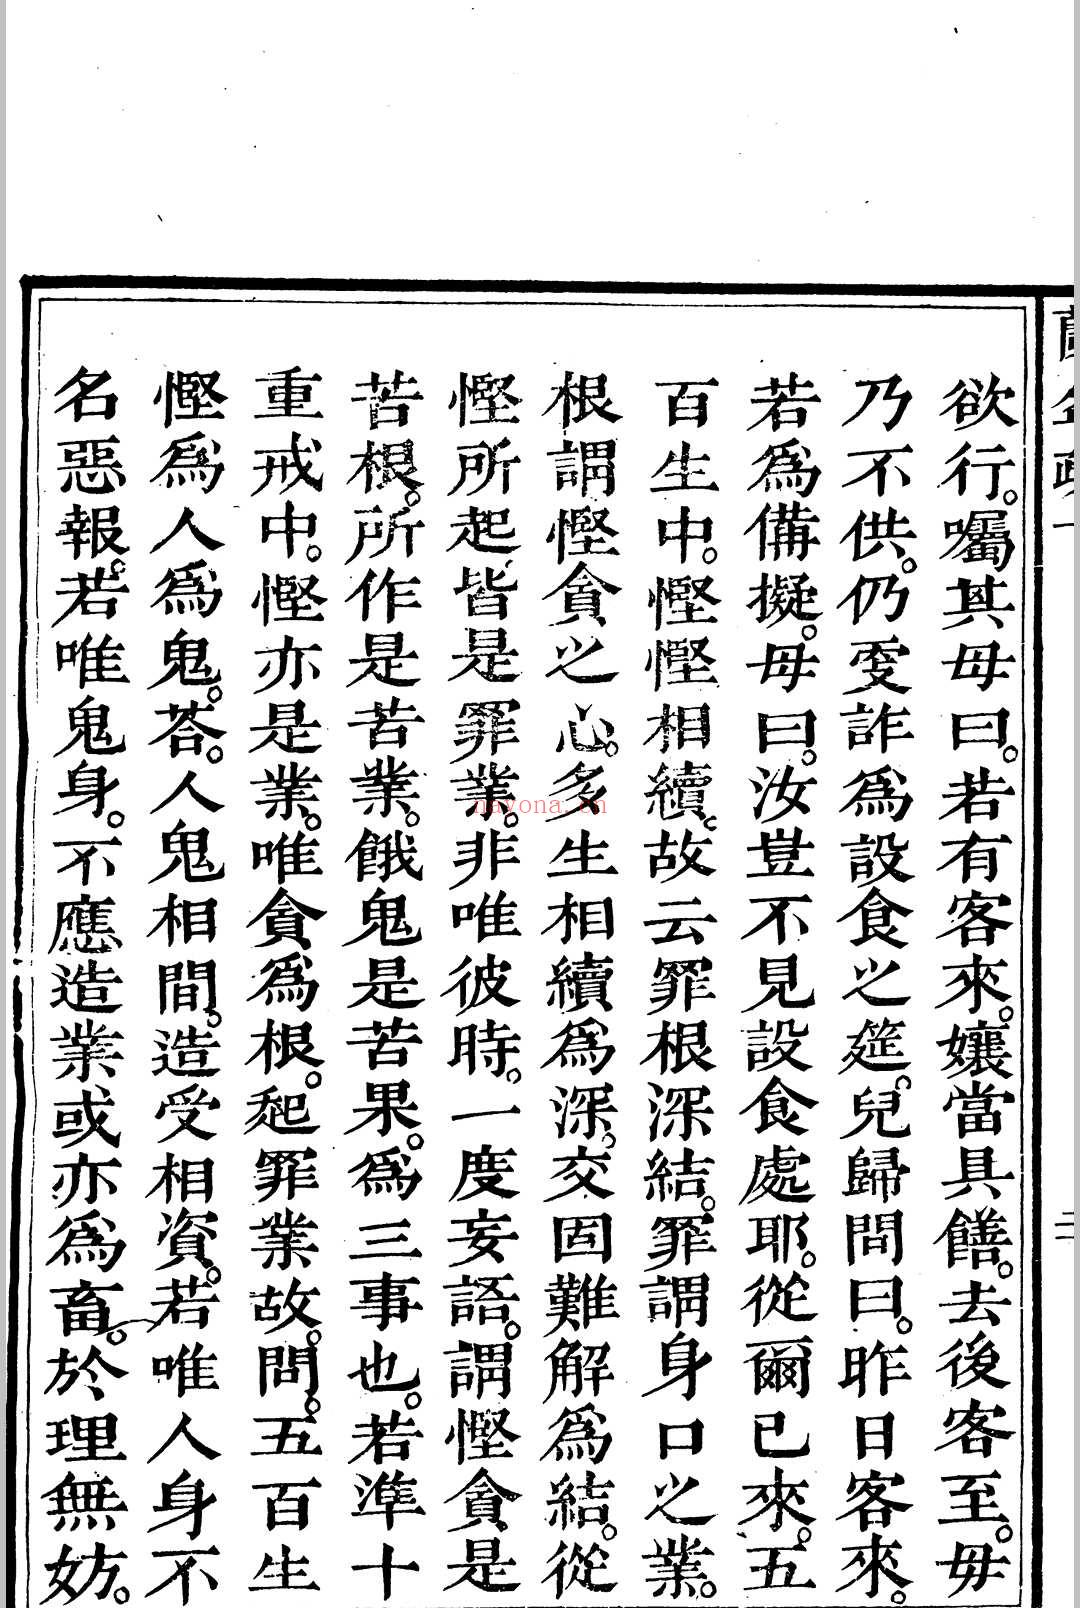 欲行。囑其母曰。若有客來。孃當具饍。去後客至。母
乃不供。仍更詐為設食之筵。兒歸問曰。昨日客來。
若為備擬。母曰。汝豈不見設食處耶。從爾已來。五
百生中。慳慳相續。故云罪根深結。罪謂身口之業。
根謂慳貪之心。多生相續為深。交固難解為結。從
慳所起皆是罪業。非唯彼時。一度妄語。謂慳貪是
苦根。所作是苦業。餓鬼是苦果。為三事也。若準十
重戒中。慳亦是業。唯貪為根。起罪業故。問。五百生
慳為人為鬼。荅。人鬼相間。造受相資。若唯人身不
名惡報。若唯鬼身。不應造業或亦為畜。於理無妨。
nayona.cn